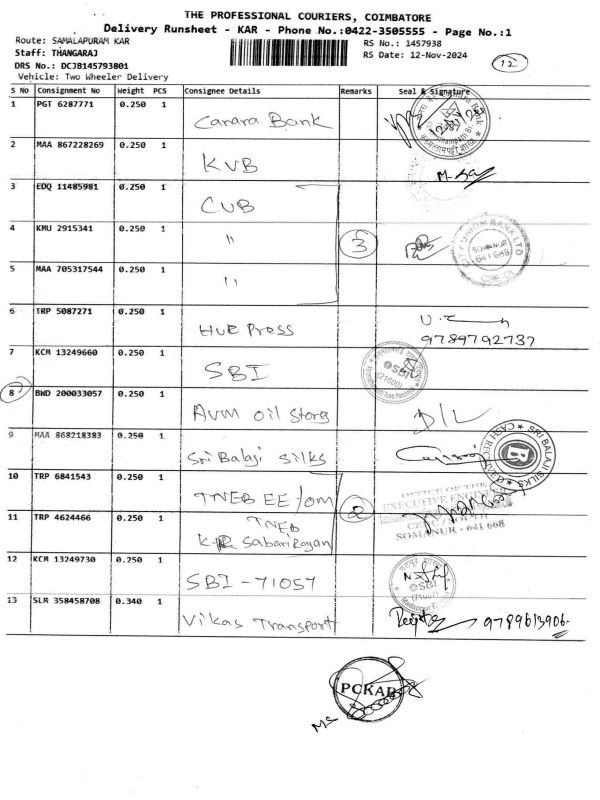 THE PROFESSIONAL COURIERS, COIMBATORE
Delivery Runsheet - KAR - Phone No.:0422-3505555 - Page No.:1
Route: SAMALAPURAM KAR
RS No.: 1457938
Staff: THANGARAJ
RS Date: 12-Nov-2024
12
DRS No.: DCJB145793801
Vehicle: Two Wheeler Delivery
S No Consignment No Weight PCS Consignee Details Remarks Seal & Signature
1 PGT 6287771 0.250 1 Canara Bank
2 MAA 867228269 0.250 1 KVB
3 EDQ 11485981 0.250 1 CUB
4 KMU 2915341 0.250 1 " 3
CITY UNION BANK LTD
SOMANUR
641 668
5 MAA 705317544 0.250 1 "
6 TRP 5087271 0.250 1 HUB Press
9789792737
7 KCM 13249660 0.250 1 SBI
SBI
(21000)
8 BWD 200033057 0.250 1 AVM oil Stores D/L
9 MAA 868218383 0.250 1 Sri Balaji Silks
SRI BALAJI SILKS
CASH RECEIVED
B
10 TRP 6841543 0.250 1 TNEB EE/OM 2
OFFICE OF THE
EXECUTIVE ENGINEER
SOMANUR - 641 668
11 TRP 4624466 0.250 1 TNEB
K.R Sabari Rayan
12 KCM 13249730 0.250 1 SBI - 71057
SBI
13 SLM 358458708 0.340 1 Vikas Transport 9789613906
PCKAR